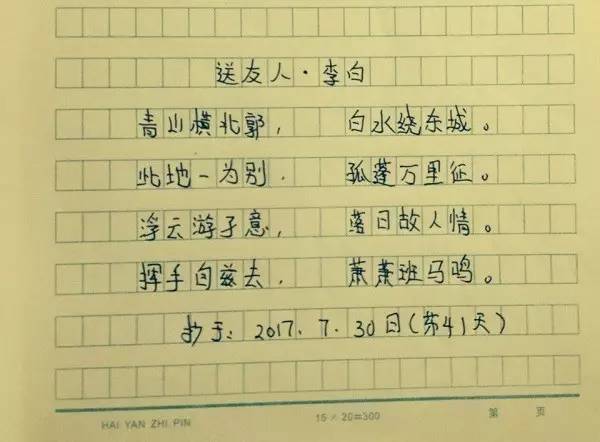 送友人·李白
青山横北郭, 白水绕东城。
此地一为别, 孤蓬万里征。
浮云游子意, 落日故人情。
挥手自兹去, 萧萧班马鸣。
抄于: 2017. 7. 30日(第41天)
HAI YAN ZHI PIN 15 × 20=300 第 页